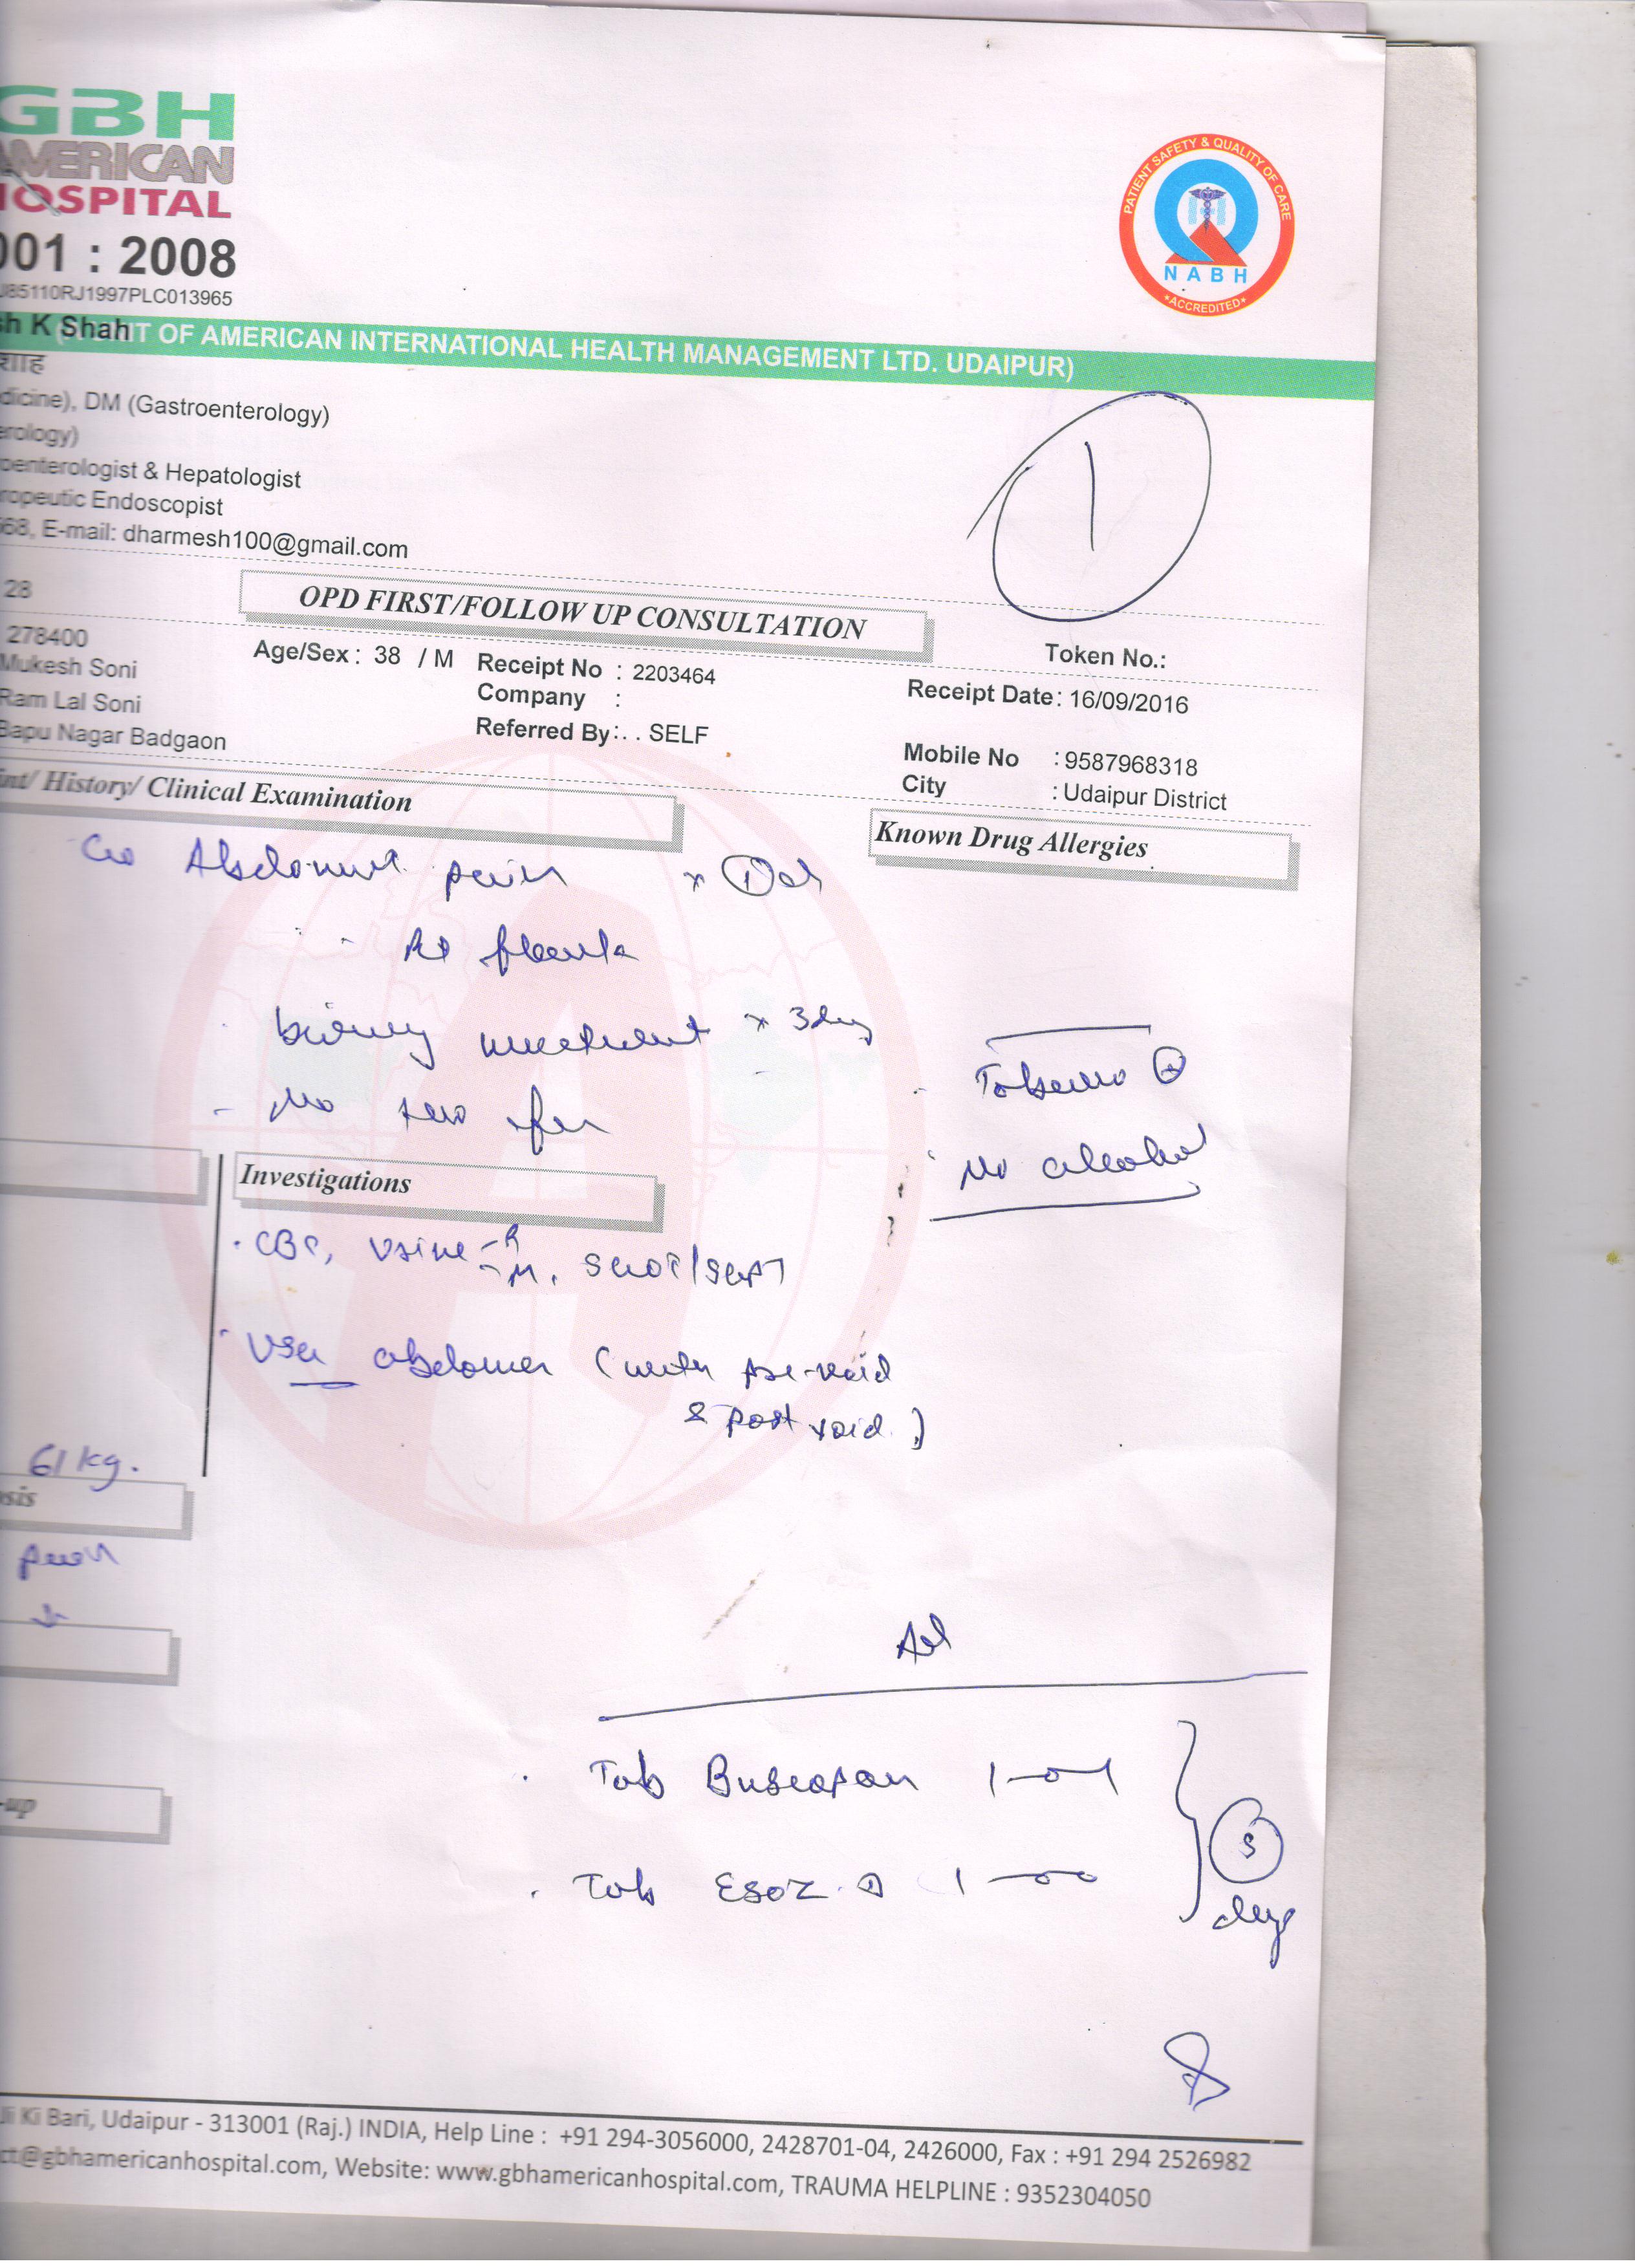 GBH
AMERICAN
HOSPITAL
001 : 2008
U85110RJ1997PLC013965
PATIENT SAFETY & QUALITY OF CARE
NABH
ACCREDITED
sh K Shah
IT OF AMERICAN INTERNATIONAL HEALTH MANAGEMENT LTD. UDAIPUR)
शाह
dicine), DM (Gastroenterology)
erology)
oenterologist & Hepatologist
ropeutic Endoscopist
568, E-mail: dharmesh100@gmail.com
1
28
OPD FIRST/FOLLOW UP CONSULTATION
Token No.:
278400
Mukesh Soni
Age/Sex : 38 / M
Receipt No : 2203464
Receipt Date : 16/09/2016
Ram Lal Soni
Company :
Bapu Nagar Badgaon
Referred By : . . SELF
Mobile No : 9587968318
City : Udaipur District
int/ History/ Clinical Examination
Known Drug Allergies
Abdominal pain x 1 d
Rt flank
burning x 3 day
No
Tobacco
No alcohol
Investigations
CBC, Urine - R - M, SGOT/SGPT
USG abdomen (with pre-void
& post void)
61 kg.
sis
pain
Adv
Tab Buscopan 1-0-1
-up
5
Tab ESOZ D 1-0-0
days
Ji Ki Bari, Udaipur - 313001 (Raj.) INDIA, Help Line : +91 294-3056000, 2428701-04, 2426000, Fax : +91 294 2526982
ct@gbhamericanhospital.com, Website: www.gbhamericanhospital.com, TRAUMA HELPLINE : 9352304050